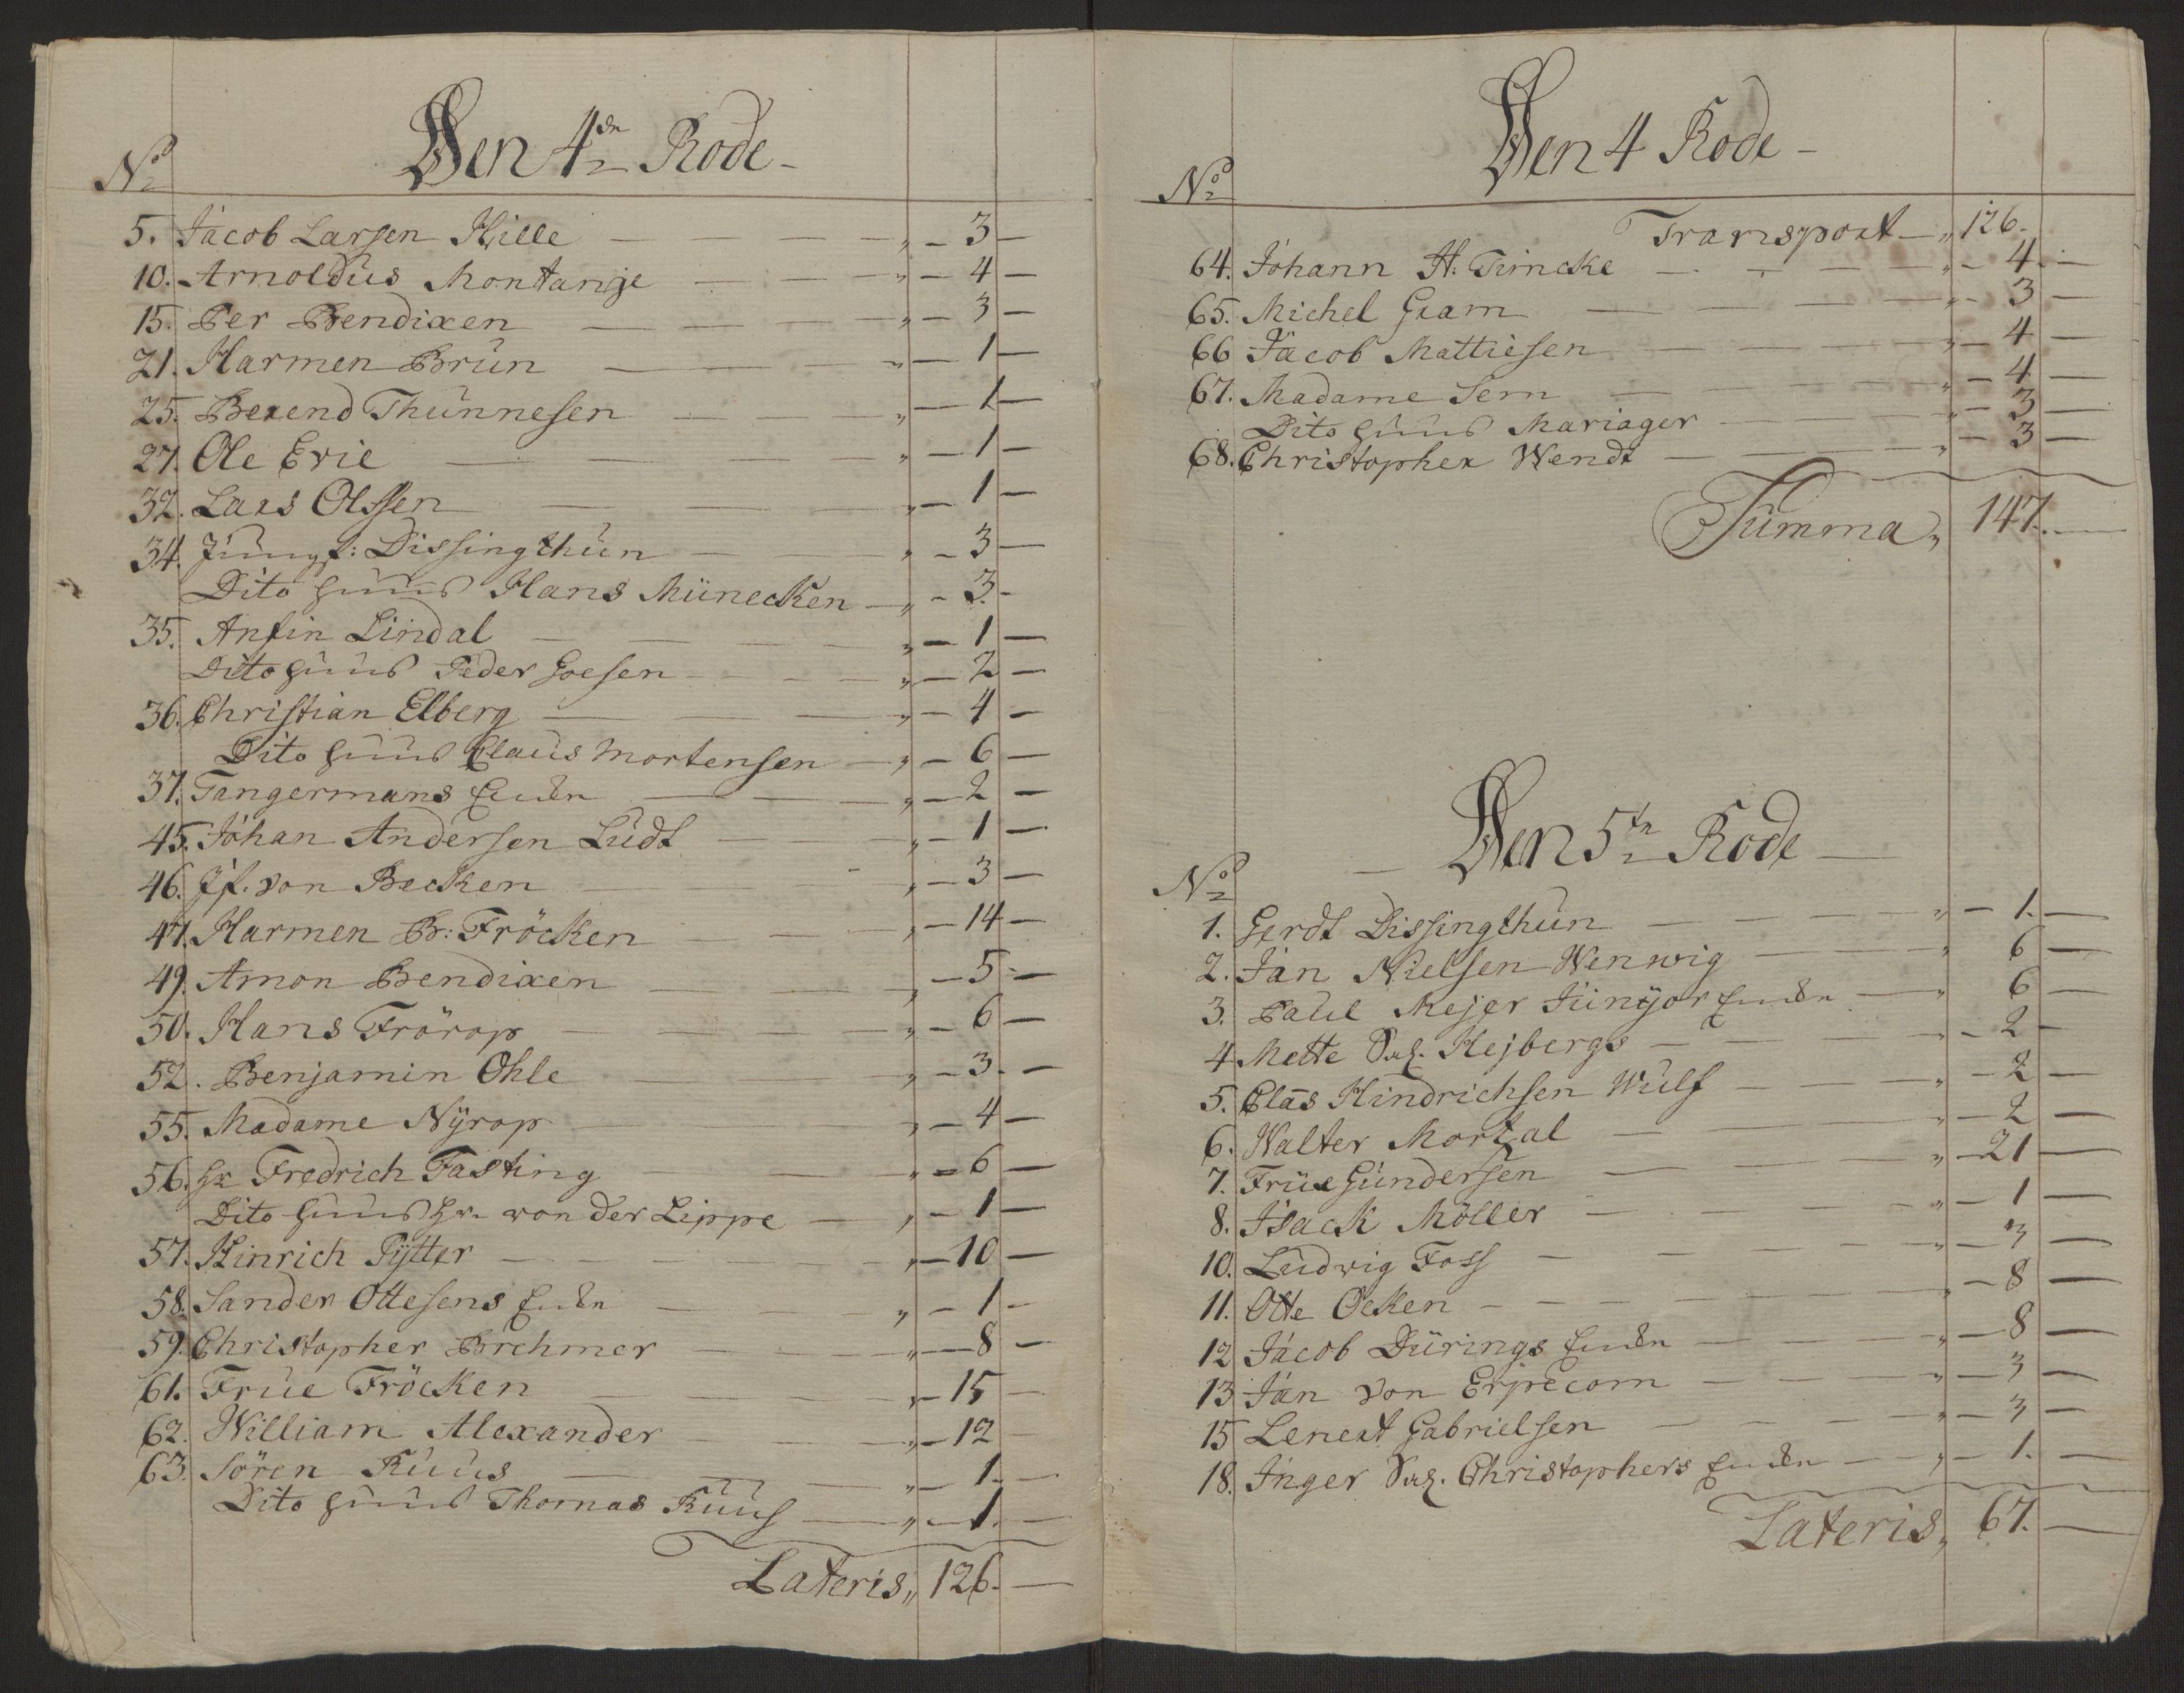 Den 4de Rode
No
5. Jacob Larsen Hille — 3 —
10. Arnoldus Montanje — 4 —
15. Per Bendixen — 3 —
21. Harmen Brün — 1 —
25. Berend Thünnesen — 1 —
27. Ole Evie — 1 —
32. Lars Olssen — 1 —
34. Jüngf: Dissingthün — 3 —
Dito Huus Hans Münecken — 3 —
35. Anfin Lindal — 1 —
Dito Huus Peder Goesen — 2 —
36. Christian Elberg — 4 —
Dito Huus Claus Mortensen — 6 —
37. Tangermans Enke — 2 —
45. Johan Andersen Lüdt — 1 —
46. Jf. von Becken — 3 —
47. Harmen Br: Fröcken — 14 —
49. Amon Bendixen — 5 —
50. Hans Frörop — 6 —
52. Benjamin Ohle — 3 —
55. Madame Nÿrop — 4 —
56. Hr Fredrich Fasting — 6 —
Dito Huus Hr. von der Lippe — 1 —
57. Hinrich Pÿtter — 10 —
58. Sander Ottesens Enke — 1 —
59. Christopher Brehmer — 8 —
61. Frue Fröcken — 15 —
62. William Alexander — 12 —
63. Sören Ruus — 1 —
Dito Huus Thomas Ruus — 1 —
Lateris 126. —
Den 4 Rode
No
Transport — 126.
64. Johann H: Timcke — 4 —
65. Michel Gram — 3 —
66 Jacob Mattiesen — 4 —
67. Madame Sem — 4 —
Dito Huus Mariager — 3 —
68. Christopher Wendt — 3 —
Summa 147. —
Den 5te Rode
No
1. Gerdt Dissingthün — 1. —
2. Jan Nielsen Wenwig — 6 —
3. Paul Mejer Jünÿor Enke — 6 —
4 Mette Sal. Hejbergs — 2 —
5. Clas Hindrichsen Wulf — 2 —
6. Walter Mortal — 2 —
7. Früe Gündersen — 21 —
8. Isack Möller — 1 —
10. Ludwig Foss — 3 —
11. Otte Ocken — 8 —
12 Jacob Dürings Enke — 8 —
13 Jan von Erpecom — 3 —
15 Lenert Gabrielsen — 3 —
18. Inger Sal. Christophers Enke — 1. —
Lateris 67. —